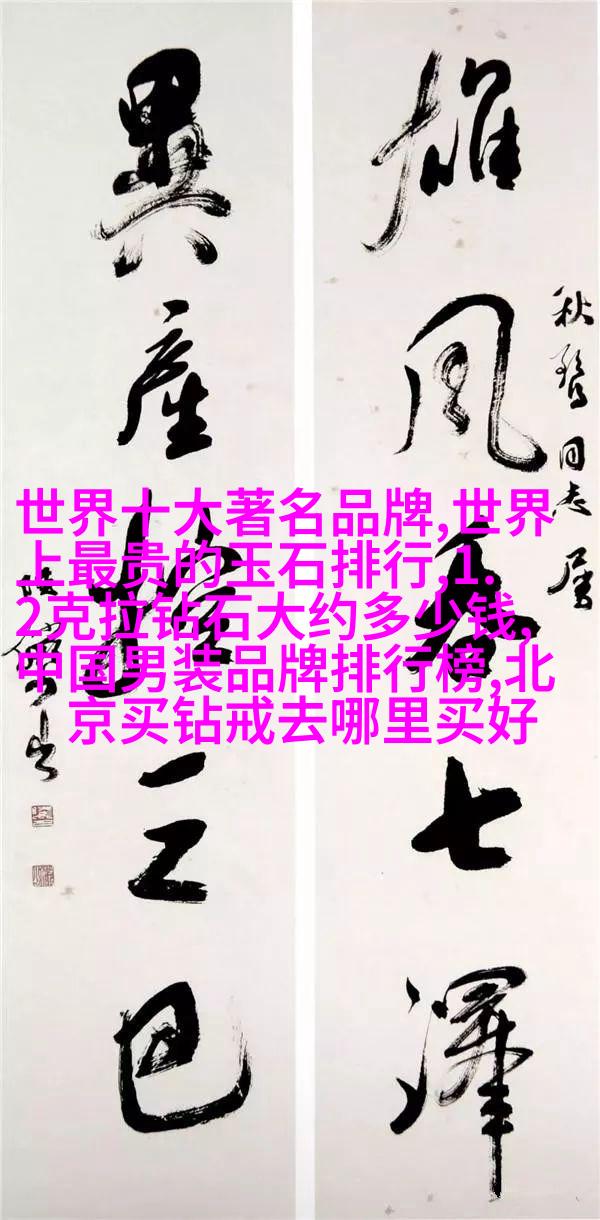 雄风吞七澤
秋鹜同志属
異產控三巴
世界十大著名品牌,世界
上最贵的玉石排行,1.
2克拉钻石大约多少钱,
中国男装品牌排行榜,北
京买钻戒去哪里买好